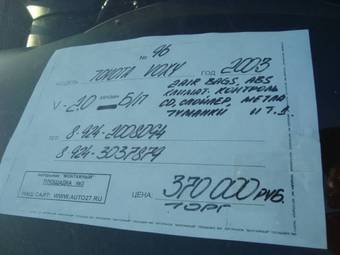 № 96
МОДЕЛЬ TOYOTA VOXY ГОД 2003
V - 2.0 Б/П
2AIR BAGS, ABS
КЛИМАТ-КОНТРОЛЬ
CD, СПОЙЛЕР, МЕТЛА
ТУМАНКИ И Т.Д.
ТЕЛ. 8-924-2008094
8-924-3037879
АВТОРЫНОК "МОНТАЖНЫЙ"
ПЛОЩАДКА №2
НАШ САЙТ: WWW.AUTO27.RU
ЦЕНА: 370 000 РУБ.
ТОРГ